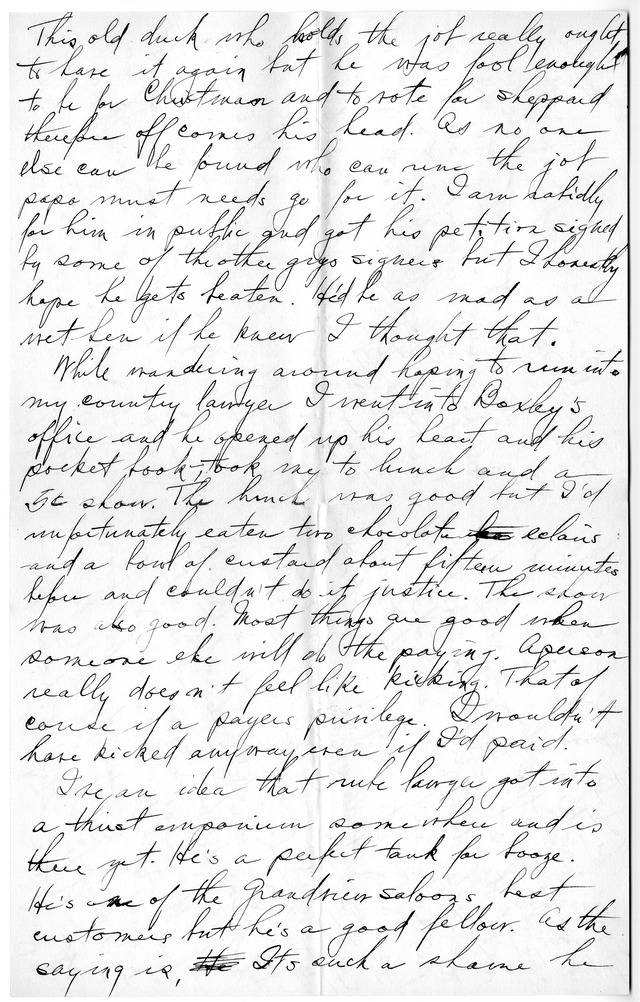 This old duck who holds the job really ought
to have it again but he was fool enough
to be for Chrisman and to vote for Sheppard
therefore off comes his head. As no one
else can be found who can run the job
papa must needs go for it. I am rabidly
for him in public and got his petition signed
by some of the other guys signers but I honestly
hope he gets beaten. He'd be as mad as a
wet hen if he knew I thought that.
While wandering around hoping to run into
my country lawyer I went into Boxley's
office and he opened up his heart and his
pocket book, took me to lunch and a
5¢ show. The lunch was good but I'd
unfortunately eaten two chocolate eclairs
and a bowl of custard about fifteen minutes
before and couldn't do it justice. The show
was also good. Most things are good when
someone else will do the paying. A person
really doesn't feel like kicking. That of
course if a payers privilege. I wouldn't
have kicked anyway even if I'd paid.
I've an idea that rube lawyer got into
a thirst emporium somewhere and is
there yet. He's a perfect tank for booze.
He's one of the Grandview saloons best
customers but he's a good fellow. As the
saying is, It's such a shame he